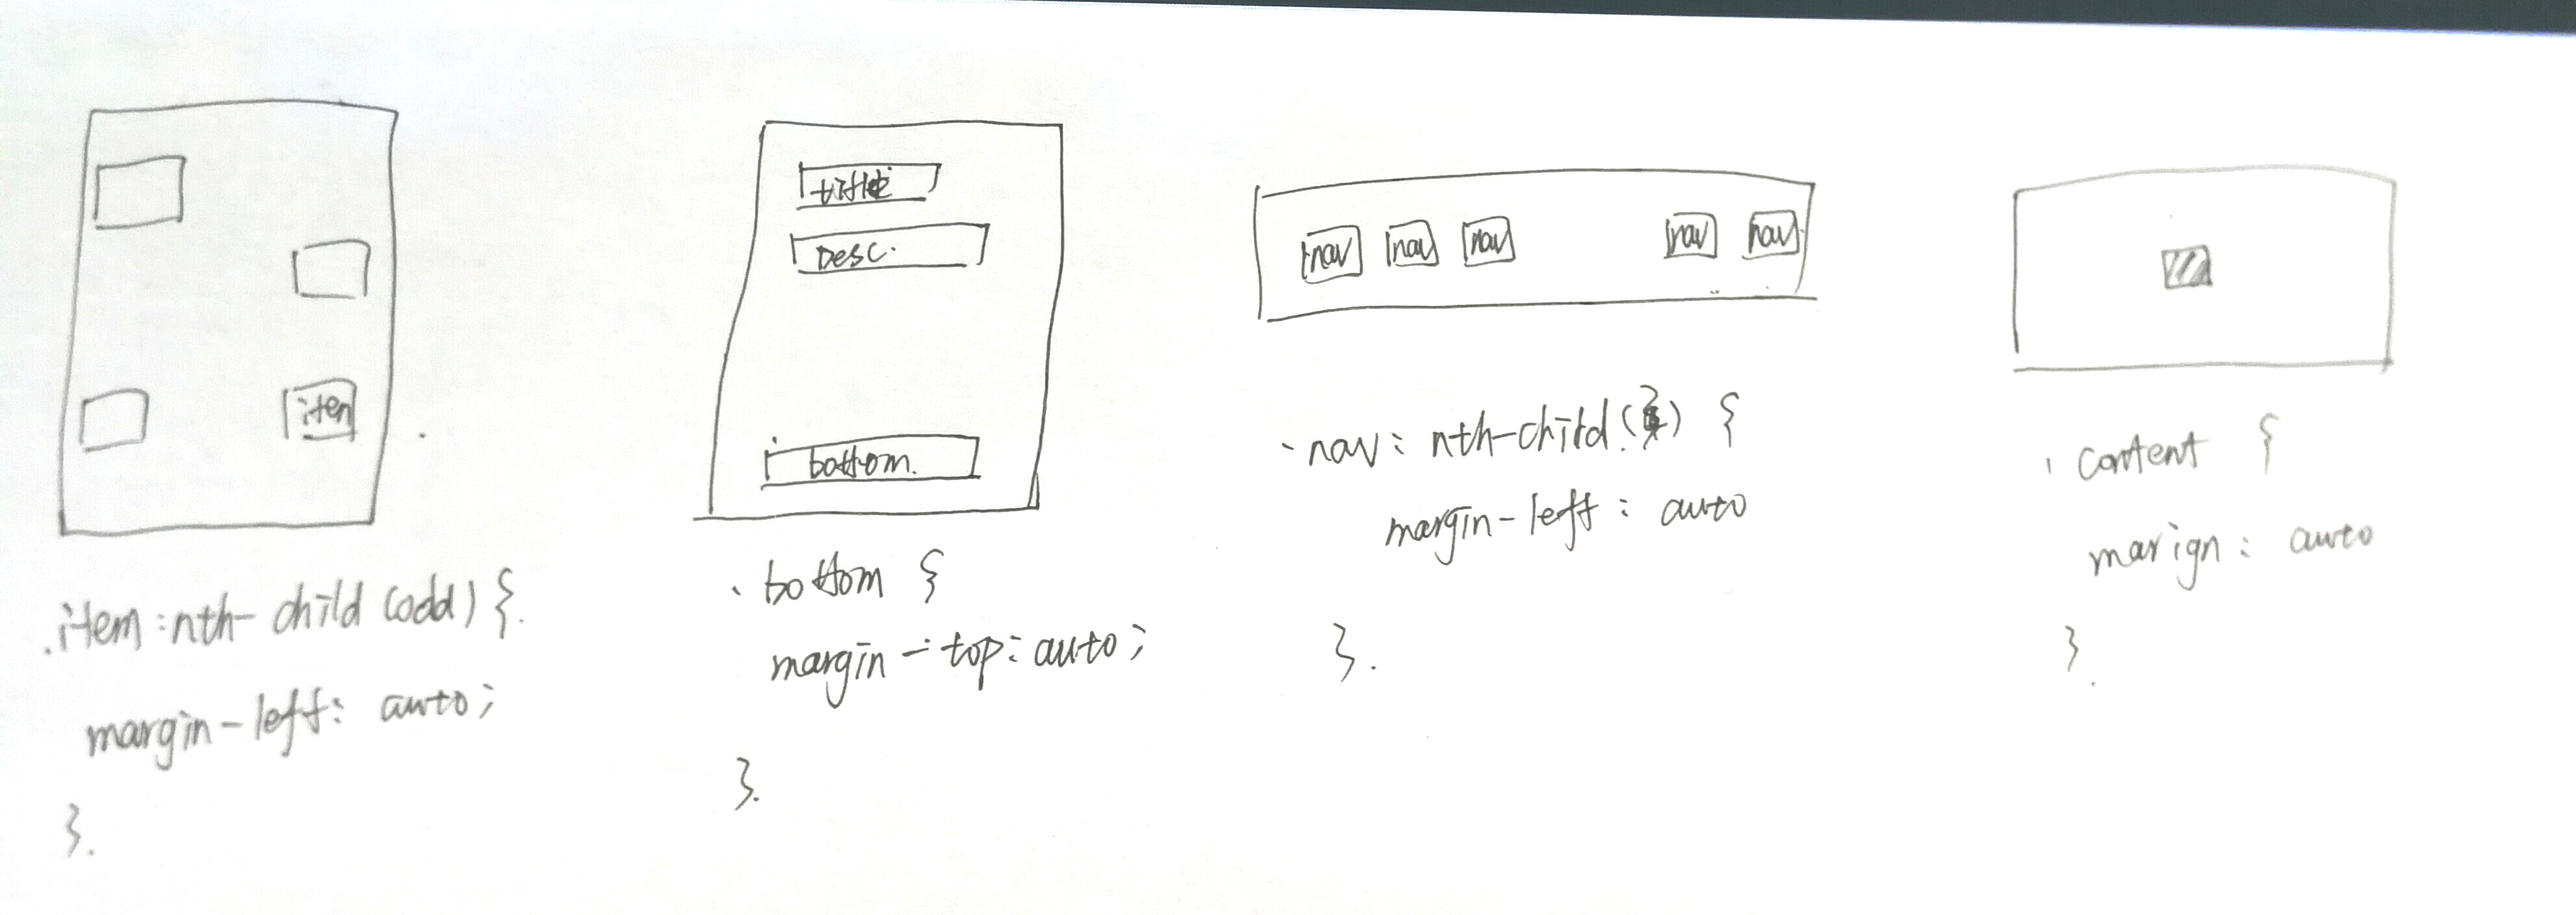 title
Desc.
bottom.
item
nav nav nav nav nav
.item:nth-child(odd) {.
margin-left: auto;
}.
.bottom {
margin-top: auto;
}.
.nav: nth-child( ) {
margin-left: auto
}.
.content {
marign: auto
}.